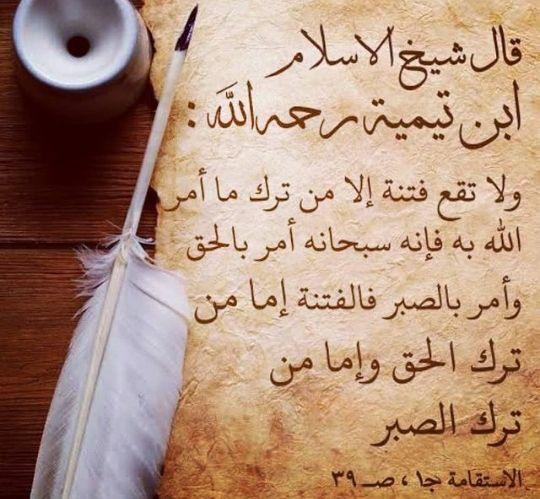 قال شيخ الاسلام
ابن تيمية رحمه الله :
ولا تقع فتنة إلا من ترك ما أمر
الله به فإنه سبحانه أمر بالحق
وأمر بالصبر فالفتنة إما من
ترك الحق وإما من
ترك الصبر
الاستقامة جـ١ ، صـ ٣٩